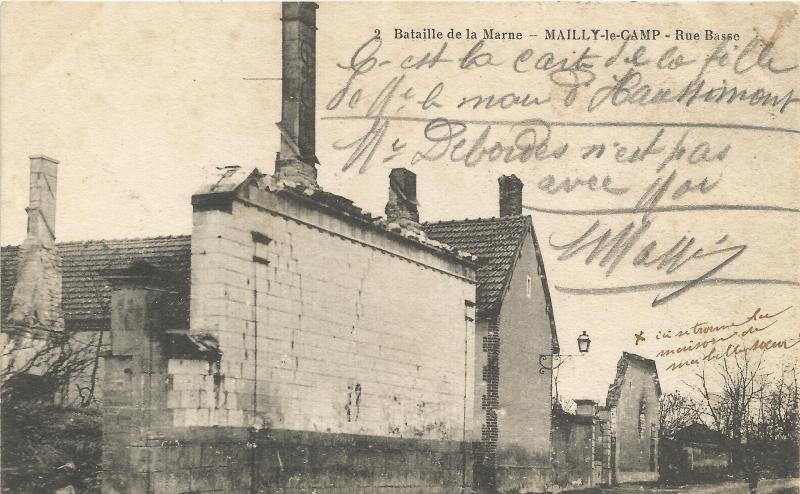 2 Bataille de la Marne – MAILLY-le-CAMP - Rue Basse
C'est la carte de la fille
de Mr le mau d'Haussimont
Mr Debordes n'est pas
avec Moi
x ici se trouve la
maison de
ma belle soeur